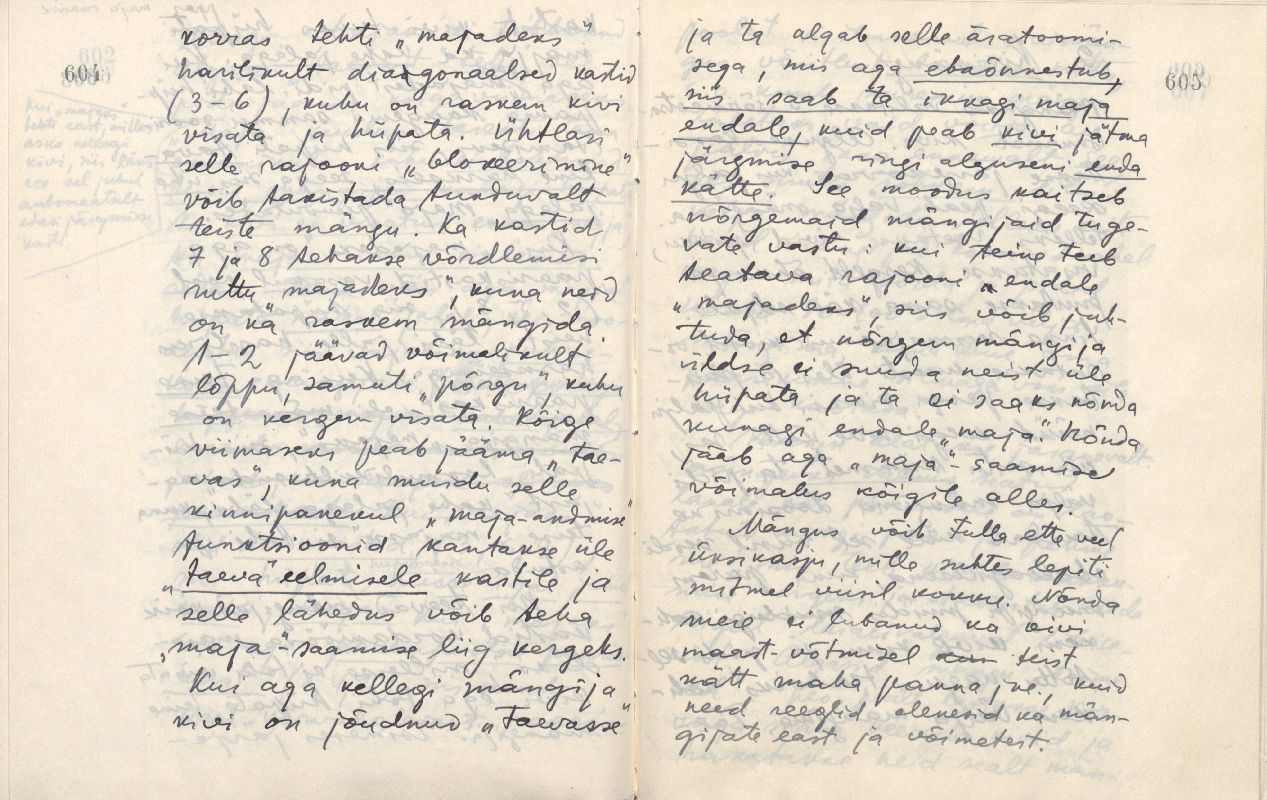 604
korras tehti „majadeks"
harilikult diagonaalsed kastid
(3-6), kuhu on raskem kivi
visata ja hüpata. Ühtlasi
selle rajooni „blokeerimine"
võib takistada tunduvalt
teiste mängu. Ka kastid
7 ja 8 tehakse võrdlemisi
ruttu „majadeks", kuna neid
on ka raskem mängida.
1-2 jäävad võimalikult
lõppu, samuti „põrgu", kuhu
on kergem visata. Kõige
viimaseks peab jääma „tae-
vas", kuna muidu selle
kinnipanekul „maja-andmise"
funktsioonid kantakse üle
„taeva" eelmisele kastile ja
selle lähedus võib teha
„maja"-saamise liig kergeks.
Kui aga kellegi mängija
kivi on jõudnud „Taevasse"
Kui „majus"
tehti kast, millesse
asks kellegi
kivi, siis
see sel juhul
automaatselt
edasi järgmisse
kasti
605
ja ta algab selle äratoomi-
sega, mis aga ebaõnnestub,
siis saab ta ikkagi maja
endale, kuid peab kivi jätma
järgmise ringi alguseni enda
kätte. See moodus kaitseb
nõrgemaid mängijaid tuge-
vate vastu: kui teine teeb
teatava rajooni endale
„majadeks", siis võib juh-
tuda, et nõrgem mängija
üldse ei suuda neist üle
hüpata ja ta ei saaks nõnda
kunagi endale „maja". Nõnda
jääb aga „maja"-saamise
võimalus kõigile alles.
Mängus võib tulla ette veel
üksikasju, mille suhtes lepiti
mitmel viisil kokku. Nõnda
meie ei lubanud ka kivi
maast-võtmisel teist
kätt maha panna jne., kuid
need reeglid olenesid ka män-
gijate east ja võimetest.